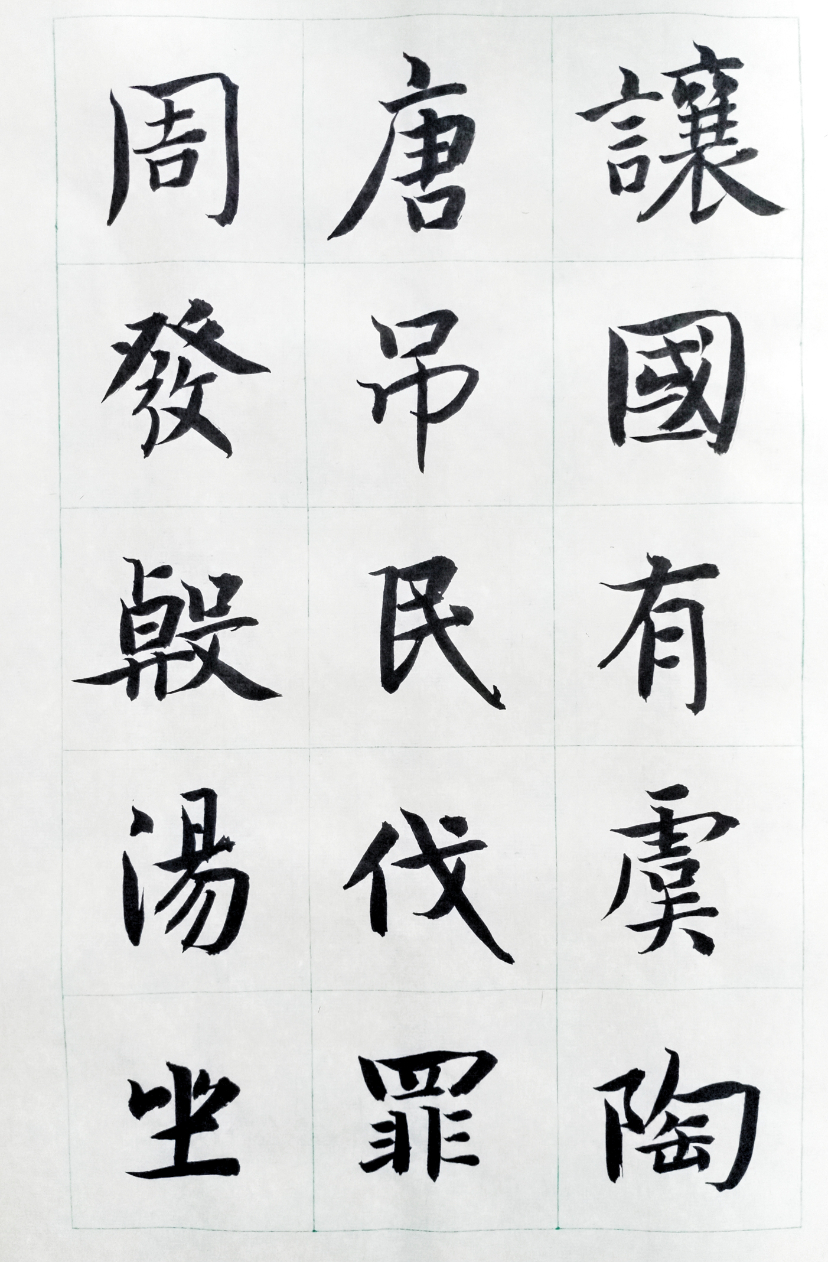 讓國有虞陶
唐吊民伐罪
周發殷湯坐